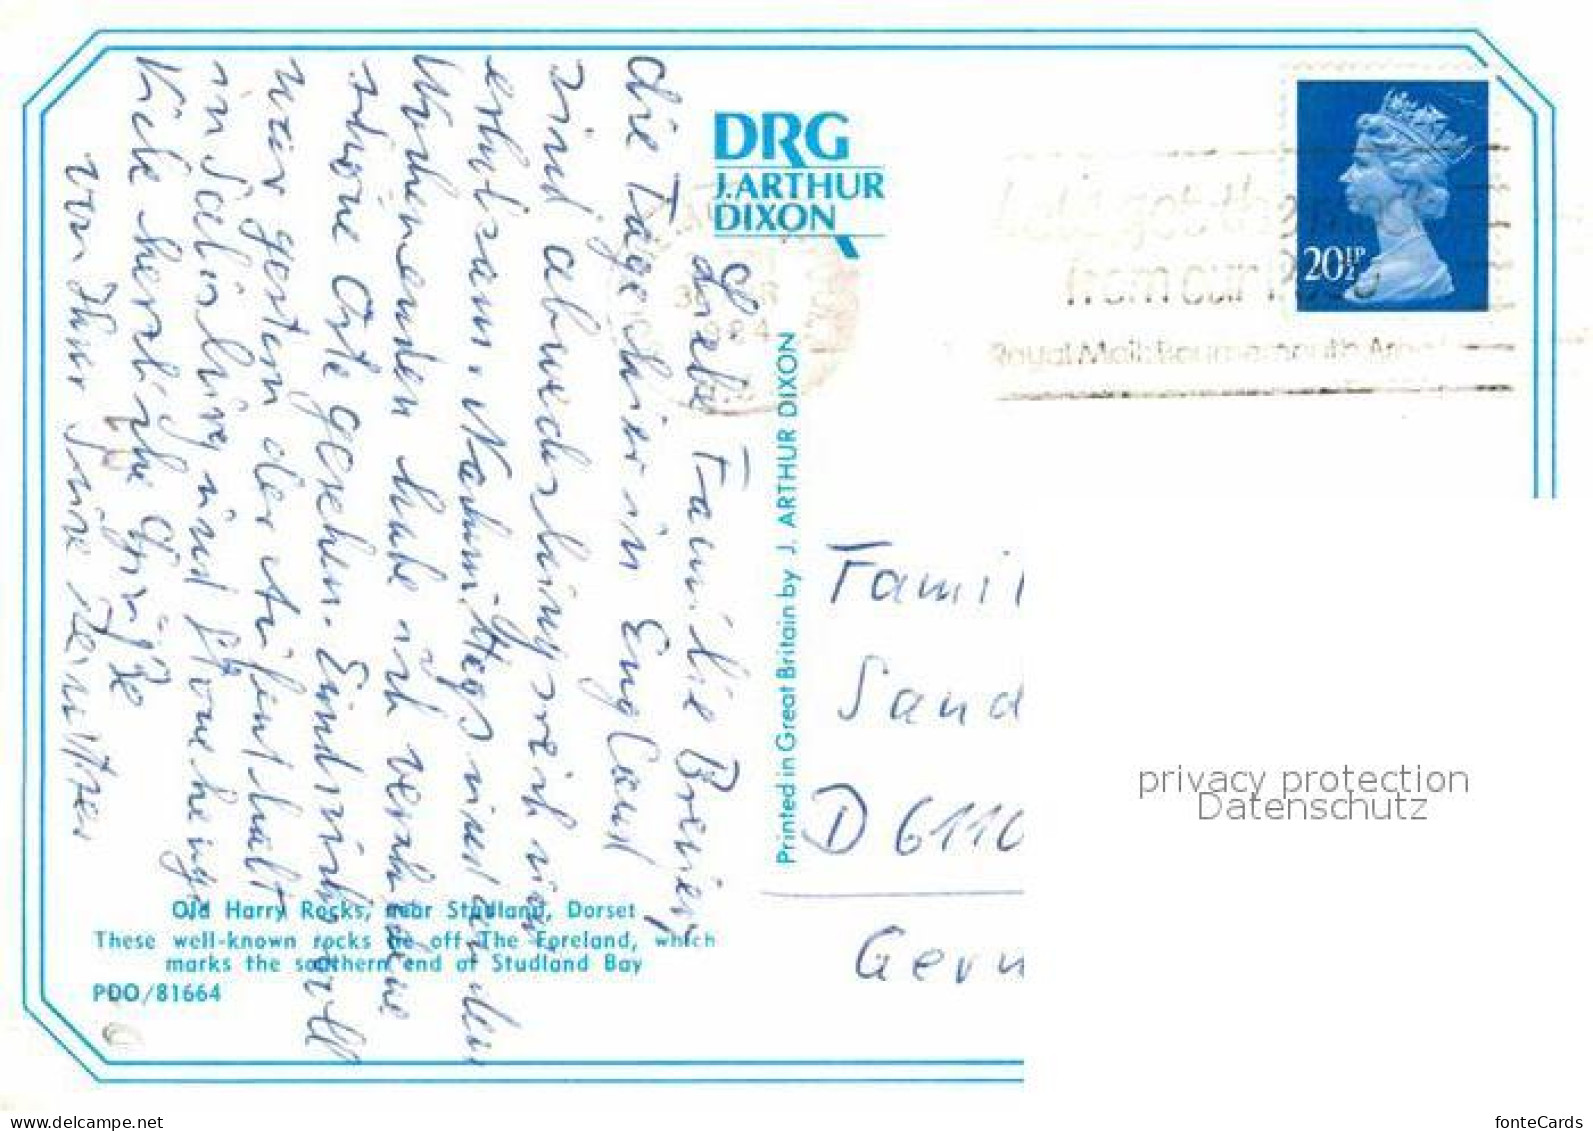 DRG
J. ARTHUR
DIXON
20½P
Let's get the
from our
Royal Mail: Bournemouth
Liebe Familie Breuer,
die Tage hier in England
sind abwechslungsreich und
erholsam. Nachmittags und an den
Wochenenden habe ich verschiedene
schöne Orte gesehen. Eindrucksvoll
war gestern der Aufenthalt
in Salisbury und Stonehenge
Viele herzliche Grüße
von Ihrer
Printed in Great Britain by J. ARTHUR DIXON
Famil
Sand
D 6110
Germ
Old Harry Rocks, near Studland, Dorset
These well-known rocks lie off The Foreland, which
marks the southern end of Studland Bay
PDO/81664
privacy protection
Datenschutz
www.delcampe.net
fonteCards